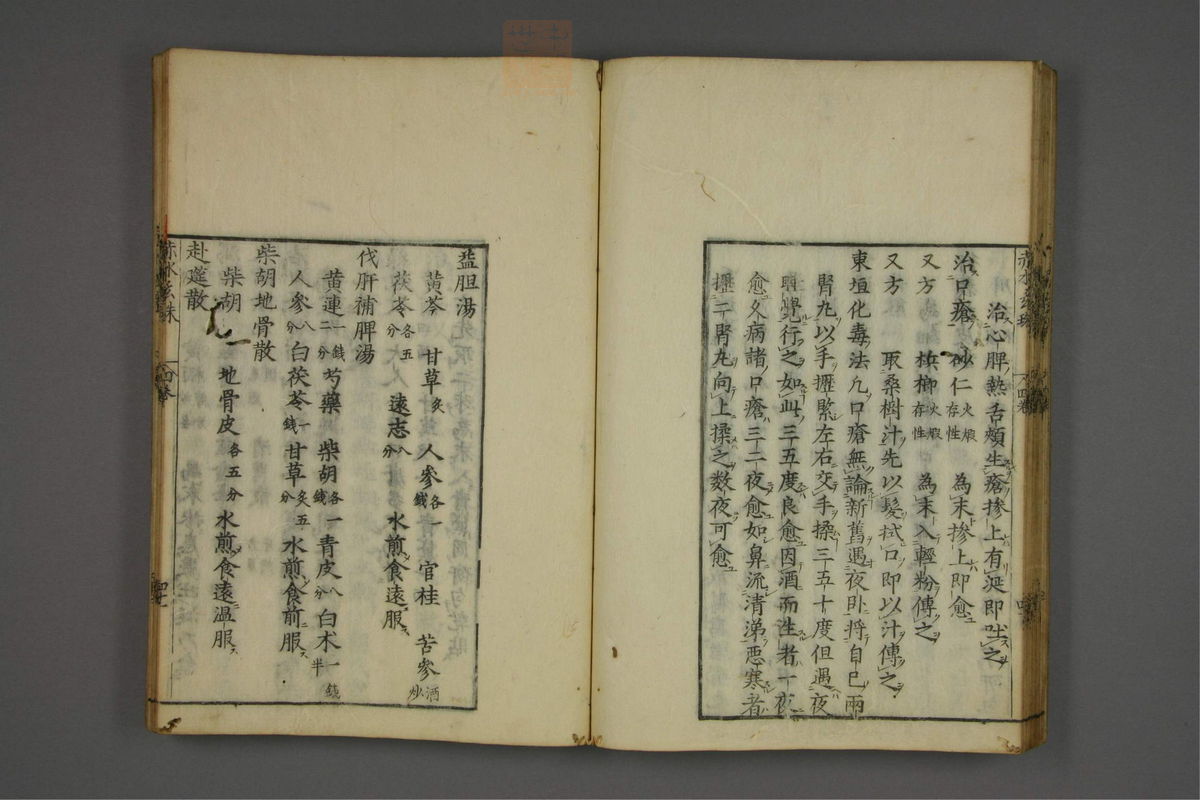 治心脾熱舌頰生瘡摻上有涎即吐之
治口瘡 砂仁火煅存性 為末摻上即愈
又方 梹榔火煅存性 為末入輕粉傅之
又方 取桑樹汁先以髮拭口即以汁傅之
東垣化毒法凢口瘡無論新舊遇夜卧將自己兩
腎丸以手攊緊左右交手揉三五十度但遇夜
睡覺行之如此三五度良愈因酒而生者一夜
愈久病諸口瘡三二夜愈如鼻流清涕惡寒者
攊二腎丸向上揉之数夜可愈
益胆湯
黄芩 甘草炙 人參各一錢 官桂 苦參酒炒
茯苓各五分 遠志八分 水煎食遠服
伐肝補脾湯
黄連一錢二分 芍藥 柴胡各一錢 青皮八分 白术一錢半
人參八分 白茯苓一錢 甘草炙五分 水煎食前服
柴胡地骨散
柴胡 地骨皮各五分 水煎食遠温服
赴筵散
赤水玄珠